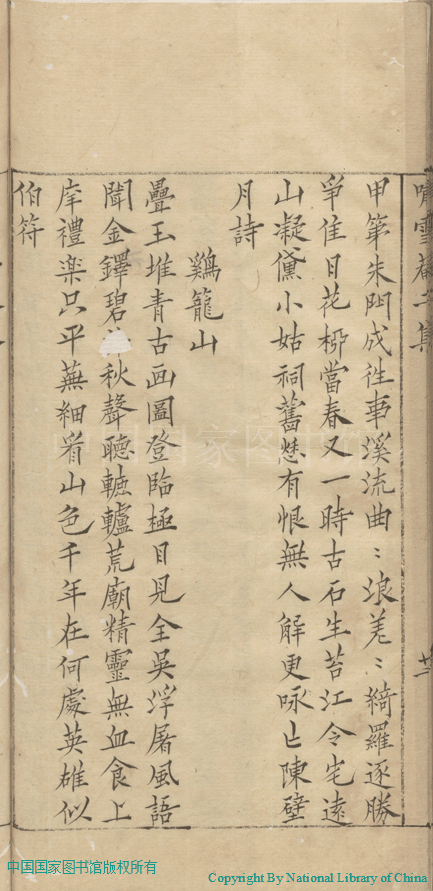 嘯雪菴二集
廿二
甲第朱門成徃事溪流曲〻浪羌〻綺羅逐勝
爭隹日花柳當春又一時古石生苔江令宅遠
山凝黛小姑祠舊愁有恨無人解更咏亡陳壁
月詩
鷄籠山
疊玉堆青古画圖登臨極目見全吳浮屠風語
聞金鐸碧 秋聲聴轆轤荒廟精靈無血食上
庠禮楽只平蕪細看山色千年在何處英雄似
伯符
中国国家图书馆
中国国家图书馆版权所有
Copyright By National Library of China